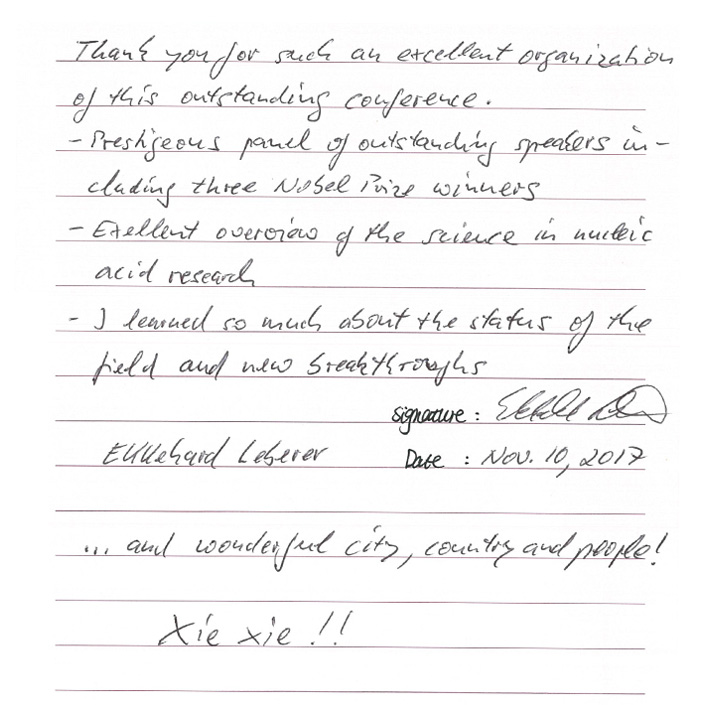 Thank you for such an excellent organization
of this outstanding conference.
- Prestigeous panel of outstanding speakers in-
cluding three Nobel Prize winners
- Exellent overview of the science in nucleic
acid research
- I learned so much about the status of the
field and new breakthroughs
Signature :
Ekkehard Leberer Date : Nov. 10, 2017
... and wonderful city, country and people!
Xie xie !!